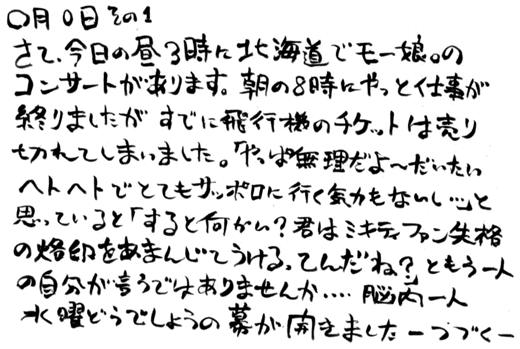 〇月〇日その1
さて、今日の昼3時に北海道でモー娘。の
コンサートがあります。朝の8時にやっと仕事が
終りましたが すでに飛行機のチケットは売り
切れてしまいました。「やっぱ無理だよ〜だいたい
ヘトヘトでとてもサッポロに行く気力もないし…」と
思っていると「すると何かい?君はミキティファン失格
の烙印をあまんじてうける、てんだね?」ともう一人
の自分が言うではありませんか…. 脳内一人
水曜どうでしょうの幕が開きましたーつづくー